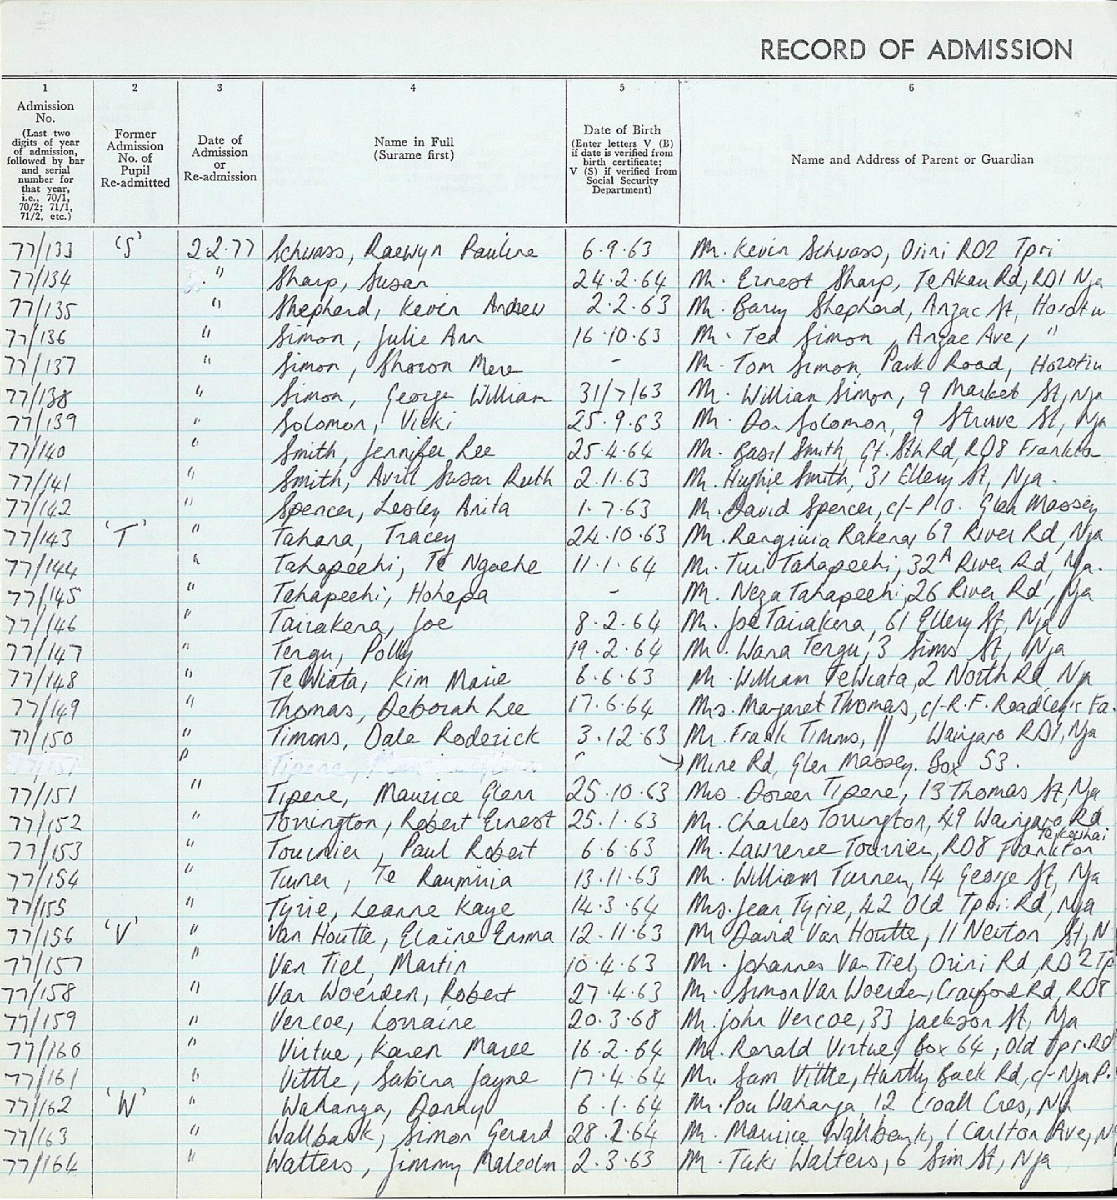 RECORD OF ADMISSION
1 2 3 4 5 6
Admission No. (Last two digits of year of admission, followed by bar and serial number for that year, i.e., 70/1, 70/2; 71/1, 71/2, etc.)
Former Admission No. of Pupil Re-admitted
Date of Admission or Re-admission
Name in Full (Surame first)
Date of Birth (Enter letters V (B) if date is verified from birth certificate; V (S) if verified from Social Security Department)
Name and Address of Parent or Guardian
77/133 'S' 2.2.77 Schwass, Raewyn Pauline 6.9.63 Mr. Kevin Schwass, Orini RD2 Tpri
77/134 " Sharp, Susan 24.2.64 Mr. Ernest Sharp, Te Akau Rd, RD1 Nja
77/135 " Shephard, Kevin Andrew 2.2.63 Mr. Barry Shephard, Anzac St, Horotiu
77/136 " Simon, Julie Ann 16.10.63 Mr. Ted Simon, Anzac Ave, "
77/137 " Simon, Sharon Mere - Mr. Tom Simon, Park Road, Horotiu
77/138 " Simon, George William 31/7/63 Mr. William Simon, 9 Market St, Nja
77/139 " Solomon, Vicki 25.9.63 Mr. Don Solomon, 9 Struve St, Nja
77/140 " Smith, Jennifer Lee 25.4.64 Mr. Basil Smith, Gt. Sth Rd, RD8 Frankton
77/141 " Smith, Avril Susan Ruth 2.11.63 Mr. Hughie Smith, 31 Ellery St, Nja.
77/142 " Spencer, Lesley Anita 1.7.63 Mr. David Spencer, c/- P/O. Glen Massey
77/143 'T' " Tahana, Tracey 24.10.63 Mr. Ranginia Rakena, 69 River Rd, Nja
77/144 " Tahapeehi, Te Ngaehe 11.1.64 Mr. Tuu Tahapeehi, 32A River Rd, Nja.
77/145 " Tahapeehi, Hohepa - Mr. Neza Tahapeehi, 26 River Rd, Nja
77/146 " Tairakena, Joe 8.2.64 Mr. Joe Tairakena, 61 Ellery St, Nja
77/147 " Tergu, Polly 19.2.64 Mr. Wara Tergu, 3 Sims St, Nja
77/148 " Te Wiata, Kim Marie 6.6.63 Mr. William Te Wiata, 2 North Rd, Nja
77/149 " Thomas, Deborah Lee 17.6.64 Mrs. Margaret Thomas, c/- R.F. Road
77/150 " Timms, Dale Roderick 3.12.63 Mr. Frank Timms, || Waingaro RD1, Nja
77/151 " Tipene, - Mine Rd, Glen Massey. Box 53.
77/151 " Tipene, Maurice Glenn 25.10.63 Mrs. Doreen Tipene, 13 Thomas St, Nja
77/152 " Torrington, Robert Ernest 25.1.63 Mr. Charles Torrington, 49 Waingaro Rd
77/153 " Tournier, Paul Robert 6.6.63 Mr. Lawrence Tournier, RD8 Frankton
77/154 " Turner, Te Raumiria 13.11.63 Mr. William Turner, 14 George St, Nja
77/155 " Tyrie, Leanne Kaye 14.3.64 Mrs. Jean Tyrie, 42 Old Tpri Rd, Nja
77/156 'V' " Van Houtte, Elaine Emma 12.11.63 Mr David Van Houtte, 11 Newton St, N
77/157 " Van Tiel, Martin 10.4.63 Mr. Johannes Van Tiel, Orini Rd, RD2 Tp
77/158 " Van Woerden, Robert 27.4.63 Mr. Simon Van Woerden, Crawford Rd, RD8
77/159 " Vercoe, Lorraine 20.3.68 Mr. John Vercoe, 33 Jackson St, Nja
77/160 " Virtue, Karen Maree 16.2.64 Mr. Ronald Virtue, Box 64, Old Tpri Rd
77/161 " Vittle, Sabina Jayne 17.4.64 Mr. Sam Vittle, Huntly Back Rd, c/- Nja P.
77/162 'W' " Wahanga, Danny 6.1.64 Mr. Pou Wahanga, 12 Croall Cres, Nja
77/163 " Wallbank, Simon Gerard 28.2.64 Mr. Maurice Wallbank, 1 Carlton Ave, N
77/164 " Watters, Jimmy Malcolm 2.3.63 Mr. Tuki Walters, 6 Sim St, Nja